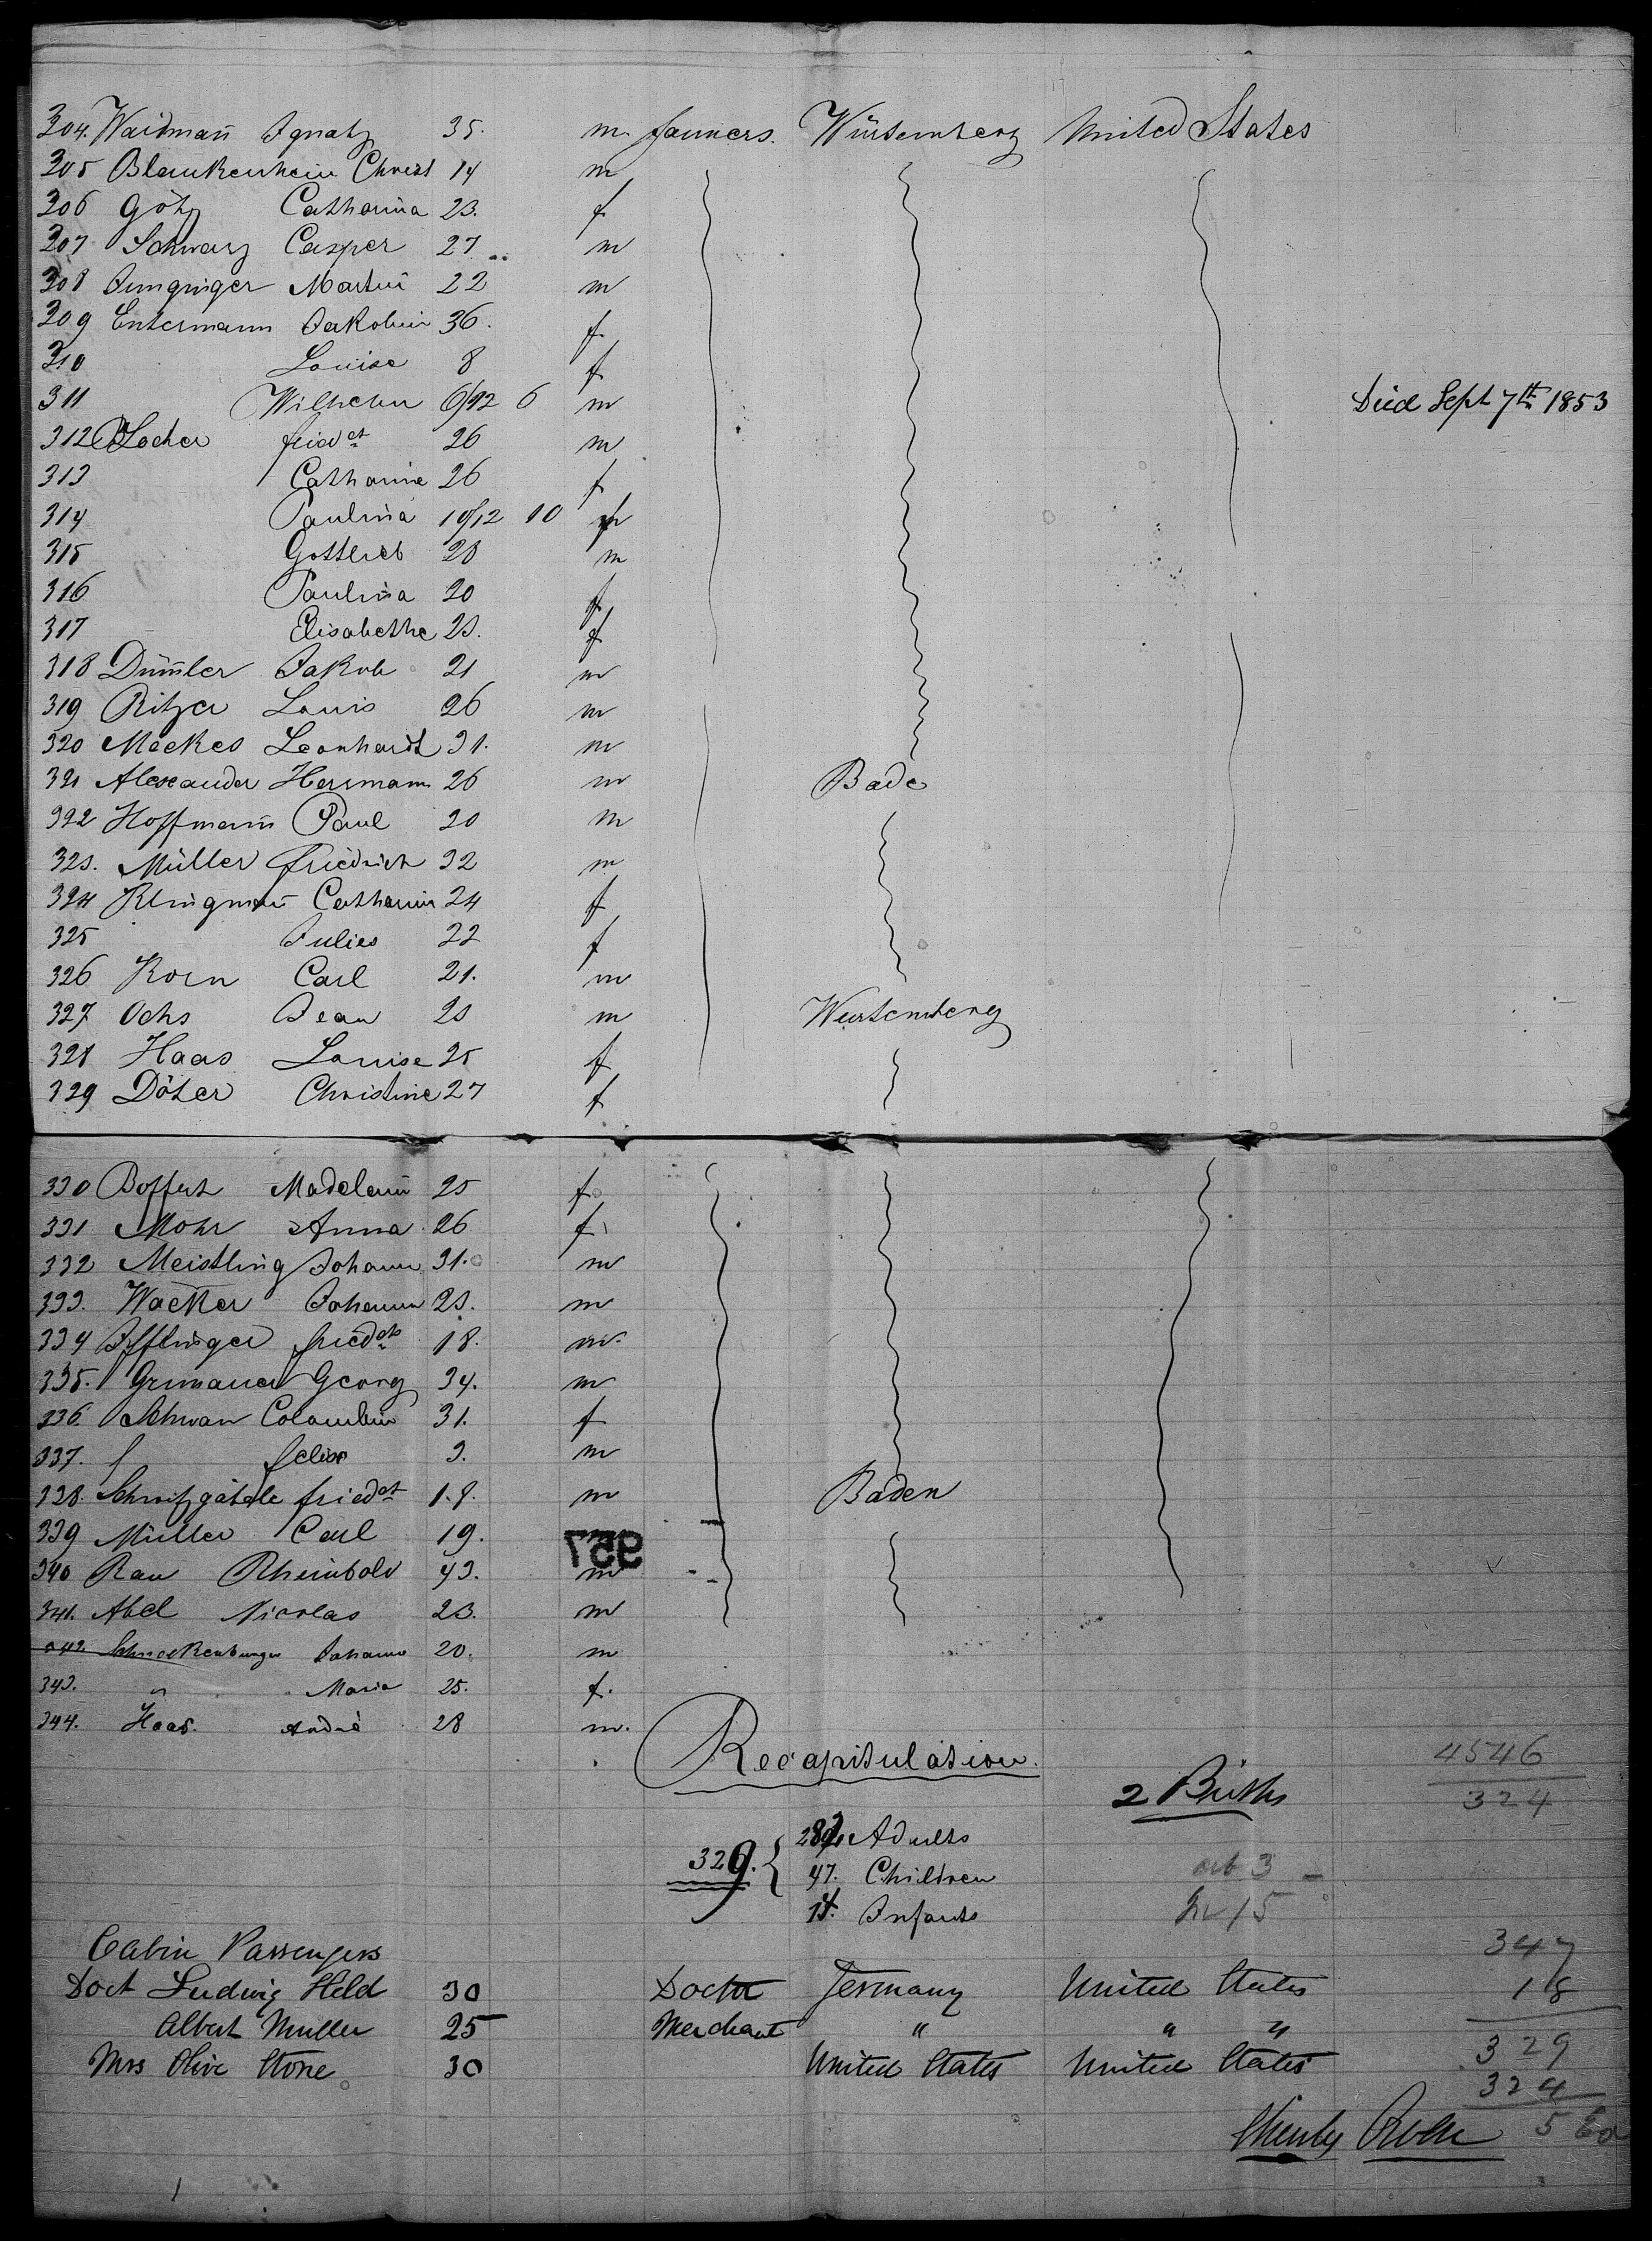 304. Waidmañ Ignatz 35. m. farmers. Würtemberg United States
305 Blankenhein Christ 14 m
306 Götz Catharina 23. f
307 Schwarz Casper 27 m
308 Jungringer Martin 22 m
309 Entermann Jakobin 36. f.
310 Louise 8 f
311 Wilhelm 6/12 6 m Died Sept 7th 1853
312 Locher fried 26 m
313 Catharine 26 f
314 Paulina 10/12 10
315 Gottlieb 28 m
316 Paulina 20 f
317 Elisabethe 23. f
318 Dum̃ler Jakob 21 m
319 Ritzer Louis 26 m
320 Meckes Leonhardt 31. m
321 Alexander Hermann 26 m Bade
322 Hoffmann Paul 20 m
323. Müller friedrich 32 m
324 Klingmañ Catharin 24 f
325 Julies 22 f
326 Korn Carl 21. m
327 Ochs Jean 23 m Wurtemberg
328 Haas Louise 25 f
329 Döter Christine 27 f
330 Boffert Madelein 25 f
331 Mohr Anna 26 f
332 Meistling Johann 31. m
333. Wacker Johann 23. m
334 Ifflinger fried 18. m.
335. Georg 34. m
336. Schwan Colombin 31. f
337. felix 3. m
338. fried 18. m Baden
339 Müller Carl 19.
957
340 Rau Rheinbold 43. m
341. Abel Nicolas 23. m
342. Schneckenburger Johann 20. m
343. " Maria 25. f.
344. Haas. André 28 m.
Recapitulation.
4546
2 Births
324
Adults
329. { 47. Children
Infants
3
15
Cabin Passengers 347
Doct Ludwig Held 30 Doctor Germany United States 18
Albert Muller 25 Merchant " " " 329
Mrs Olive Stone 30 United States United States 324
5